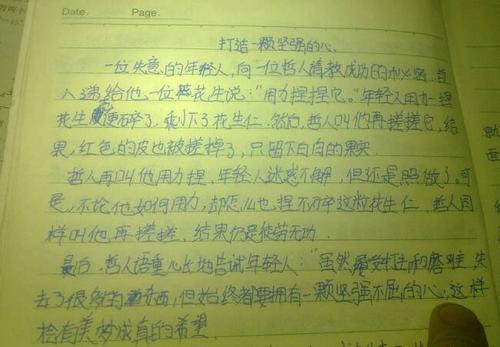 Date.          Page.
打造一颗坚强的心
一位失意的年轻人,向一位哲人请教成功的秘密,哲
人递给他一位花生说:"用力捏捏它。"年轻人用力一捏
花生便碎了,剩下了花生仁。然后,哲人叫他再搓搓它,结
果,红色的皮也被搓掉了,只留下白白的果实
哲人再叫他用力捏,年轻人迷惑不解,但还是照做了。可
是,不论他如何用力,却怎么也捏不碎这粒花生仁。哲人同
样叫他再搓搓,结果仍是徒劳无功。
最后,哲人语重心长地告诉年轻人:"虽然屡受打击和磨难,失
去了很多的东西,但始终者要拥有一颗坚强不屈的心,这样
才会有美梦成真的希望